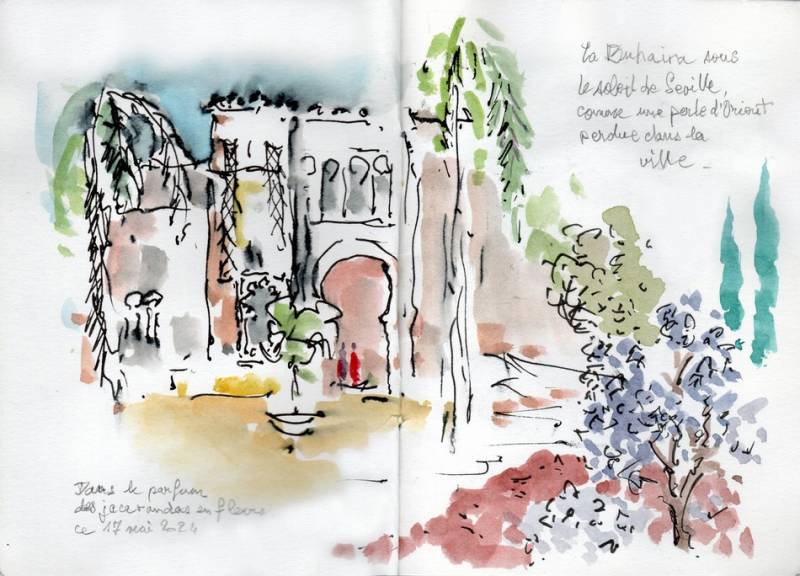 la Buhaira sous
le soleil de Seville,
comme une perle d'Orient
perdue dans la
ville _
Dans le parfum
des jacarandas en fleurs
ce 17 mai 2024